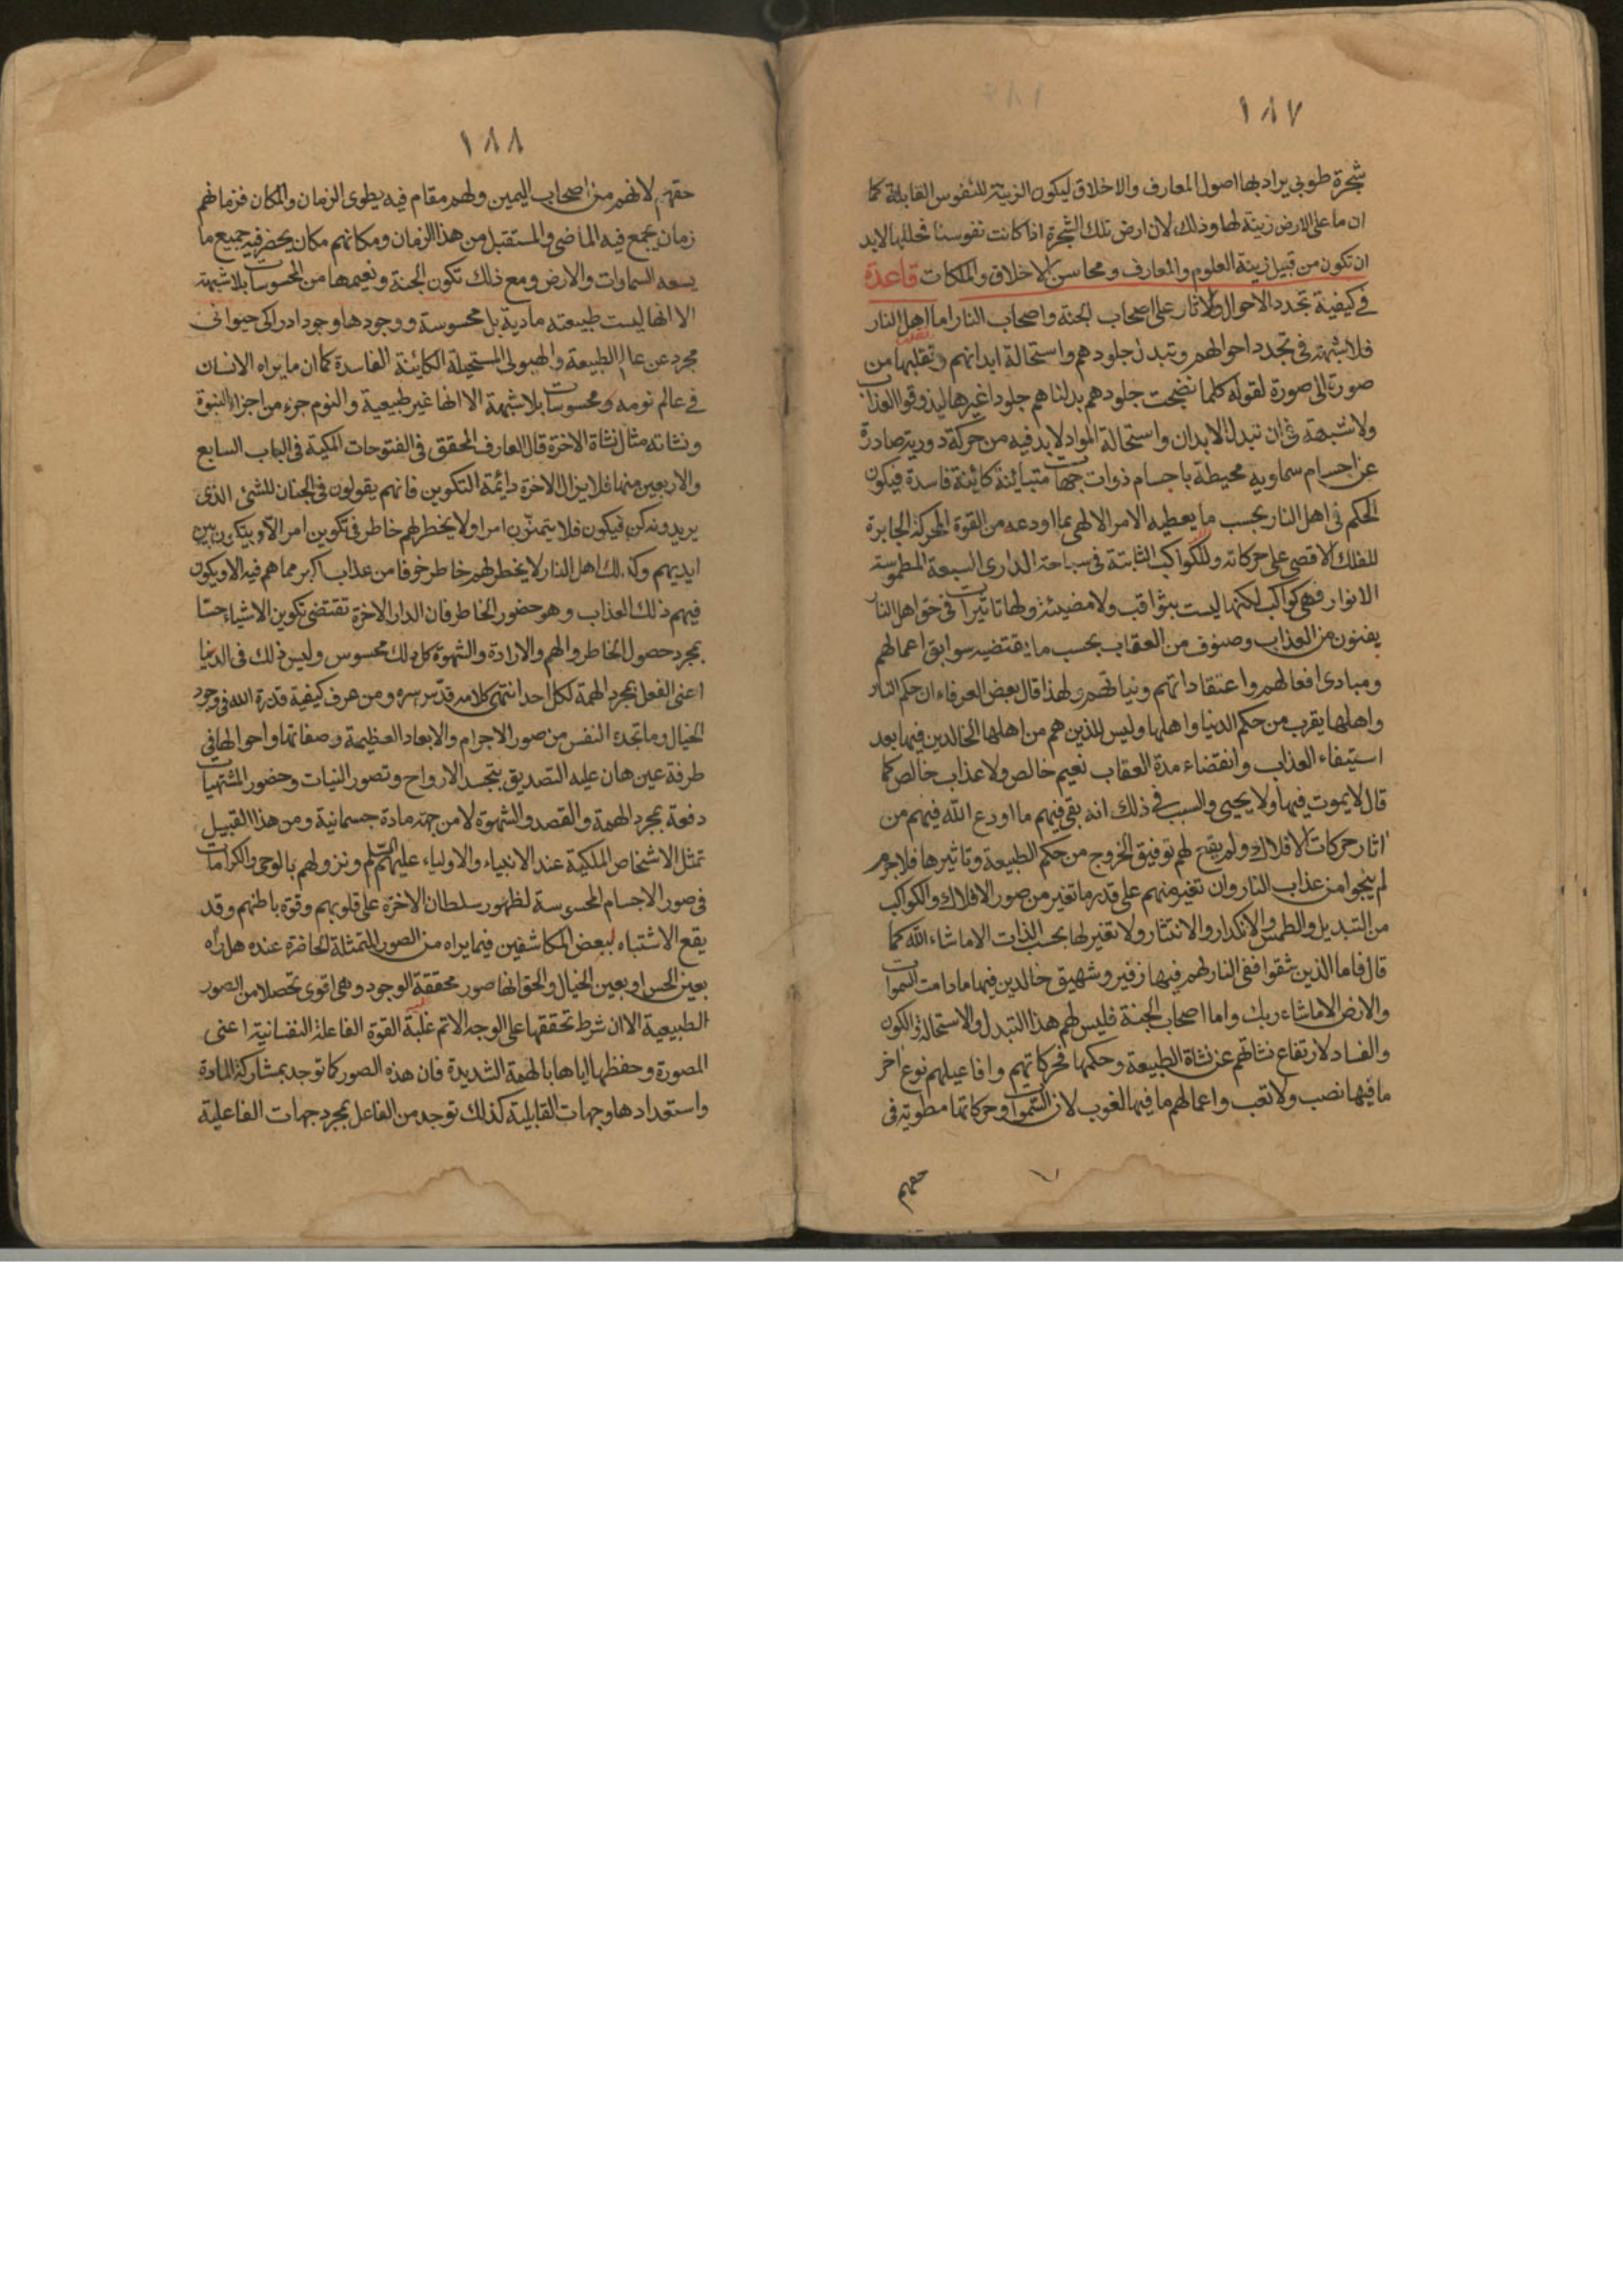 ١٨٧
شجرة طوبى يراد بها اصول المعارف والاخلاق ليكون الزينة للنفوس القابلة كما
ان ما على الارض زينة لها وذلك لان ارض تلك الشجرة اذا كانت نفوسنا فحللها لابد
ان تكون من قبيل زينة العلوم والمعارف ومحاسن الاخلاق والملكات قاعدة
في كيفية تجدد الاحوال والاثار على اصحاب الجنة واصحاب النار اما اهل النار
فلاشبهة في تجدد احوالهم وتبدل جلودهم واستحالة ابدانهم وتقلبها من
صورة الى صورة لقوله كلما نضجت جلودهم بدلناهم جلودا غيرها ليذوقوا العذاب
ولا شبهة في ان تبدل الابدان واستحالة المواد لابد فيه من حركة دورية صادرة
عن اجسام سماوية محيطة باجسام ذوات جهات متباينة كائنة فاسدة فيكون
الحكم في اهل النار بحسب ما يعطيه الامر الالهي بما اودعه من القوة المحركة الجابرة
للفلك الاقصى على حركاته وللكواكب الثابتة في سباحة الدراري السبعة المطموسة
الانوار فهي كواكب لكنها ليست بثواقب ولا مضيئة ولها تاثيرات في حق اهل النار
يفنون من العذاب وصنوف من العقاب بحسب ما يقتضيه سوابق اعمالهم
ومبادى افعالهم واعتقاداتهم ونياتهم ولهذا قال بعض العرفاء ان حكم النار
واهلها يقرب من حكم الدنيا واهلها وليس للذين هم من اهلها الخالدين فيها بعد
استيفاء العذاب وانقضاء مدة العقاب نعيم خالص ولا عذاب خالص كما
قال لا يموت فيها ولا يحيى والسبب في ذلك انه بقي فيهم ما اودع الله فيهم من
اثار حركات الافلاك ولم يقع لهم توفيق الخروج من حكم الطبيعة وتاثيرها فلاجرم
لم ينجوا من عذاب النار وان تغير منهم على قدر ما تغير من صور الافلاك والكواكب
من التبديل والطمس والانكدار والانتثار ولا تغير لها بحسب الذات الا ما شاء الله كما
قال فاما الذين شقوا ففي النار لهم فيها زفير وشهيق خالدين فيها ما دامت السموات
والارض الا ما شاء ربك واما اصحاب الجنة فليس لهم هذا التبدل والاستحالة والكون
والفساد لارتفاع نشاتهم عن نشاة الطبيعة وحكمها فحركاتهم وافاعيلهم نوع اخر
ما فيها نصب ولا تعب واعمالهم ما فيها لغوب لان السموات وحركاتها مطوية في
حقهم
١٨٨
حقهم لانهم من اصحاب اليمين ولهم مقام فيه يطوى الزمان والمكان فزمانهم
زمان يجمع فيه الماضي والمستقبل من هذا الزمان ومكانهم مكان يحضر فيه جميع ما
يسعه السماوات والارض ومع ذلك تكون الجنة ونعيمها من المحسوسات بلا شبهة
الا انها ليست طبيعته مادية بل محسوسة ووجودها وجود ادراكى حيوانى
مجرد عن عالم الطبيعة والهيولى المستحيلة الكائنة الفاسدة كما ان ما يراه الانسان
في عالم نومه ومحسوسات بلا شبهة الا انها غير طبيعية والنوم جزء من اجزاء النبوة
ونشاته مثال نشاة الاخرة قال العارف المحقق في الفتوحات المكية في الباب السابع
والاربعين منها فلا يزال الاخرة دائمة التكوين فانهم يقولون في الجنان للشئ الذى
يريدونه كن فيكون فلا يتمنون امرا ولا يخطر لهم خاطر في تكوين امر الا ويتكون بين
ايديهم وكذلك اهل النار لا يخطر لهم خاطر خوفا من عذاب اكبر مما هم فيه الا ويكون
فيهم ذلك العذاب وهو حضور الخاطر فان الدار الاخرة تقتضى تكوين الاشياء حسا
بمجرد حصول الخاطر والهم والارادة والشهوة كل ذلك محسوس وليس ذلك في الدنيا
اعنى الفعل بمجرد الهمة لكل احد انتهى كلامه قدس سره ومن عرف كيفية قدرة الله في وجود
الخيال وما تجده النفس من صور الاجرام والابعاد العظيمة وصفاتها واحوالها في
طرفة عين هان عليه التصديق بتجسد الارواح وتصور النيات وحضور المشتهيات
دفعة بمجرد الهمة والقصد والشهوة لا من جهة مادة جسمانية ومن هذا القبيل
تمثل الاشخاص الملكية عند الانبياء والاولياء عليهم السلم ونزولهم بالوحى والكرامات
في صور الاجسام المحسوسة لظهور سلطان الاخرة على قلوبهم وقوة باطنهم وقد
يقع الاشتباه لبعض المكاشفين فيما يراه من الصور المتمثلة الحاضرة عنده هل راه
بعين الحس او بعين الخيال والحق انها صور محققة الوجود وهى اقوى تحصلا من الصور
الطبيعية الا ان شرط تحققها على الوجه الاتم غلبة القوة الفاعلة النفسانية اعنى
المصورة وحفظها اياها بالهمة الشديدة فان هذه الصور كما توجد بمشاركة المادة
واستعدادها وجهات القابلية كذلك توجد من الفاعل بمجرد جهات الفاعلية